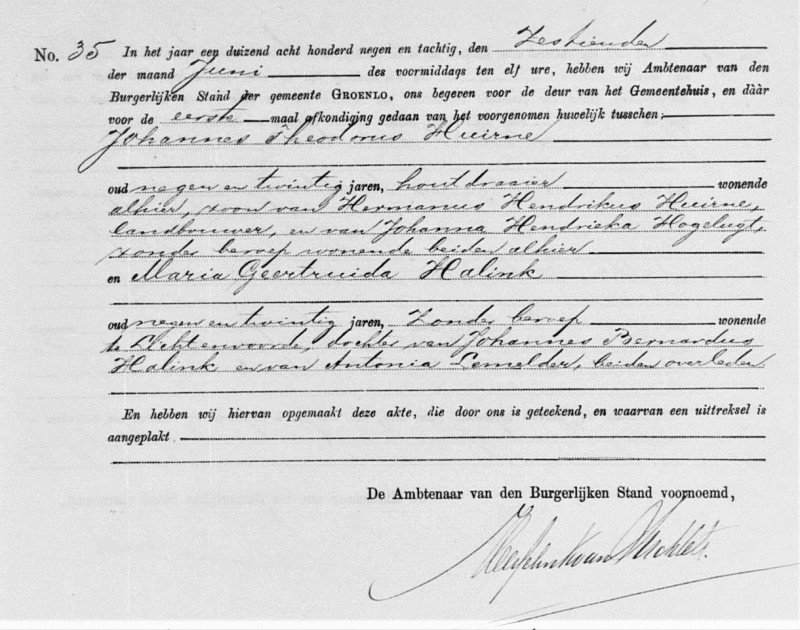 No. 35 In het jaar een duizend acht honderd negen en tachtig, den Zestienden
der maand Juni des voormiddags ten elf ure, hebben wij Ambtenaar van den
Burgerlijken Stand der gemeente GROENLO, ons begeven voor de deur van het Gemeentehuis, en dààr
voor de eerste maal afkondiging gedaan van het voorgenomen huwelijk tusschen:
Johannes Theodorus Huirne
oud negen en twintig jaren, houtdraaier wonende
alhier, zoon van Hermanus Hendrikus Huirne,
landbouwer, en van Johanna Hendrieka Hogelugt,
zonder beroep wonende beiden alhier
en Maria Geertruida Halink
oud negen en twintig jaren, Zonder beroep wonende
te Lichtenvoorde, dochter van Johannes Bernardus
Halink en van Antonia Lemelder, beiden overleden.
En hebben wij hiervan opgemaakt deze akte, die door ons is geteekend, en waarvan een uittreksel is
aangeplakt.
De Ambtenaar van den Burgerlijken Stand voornoemd,